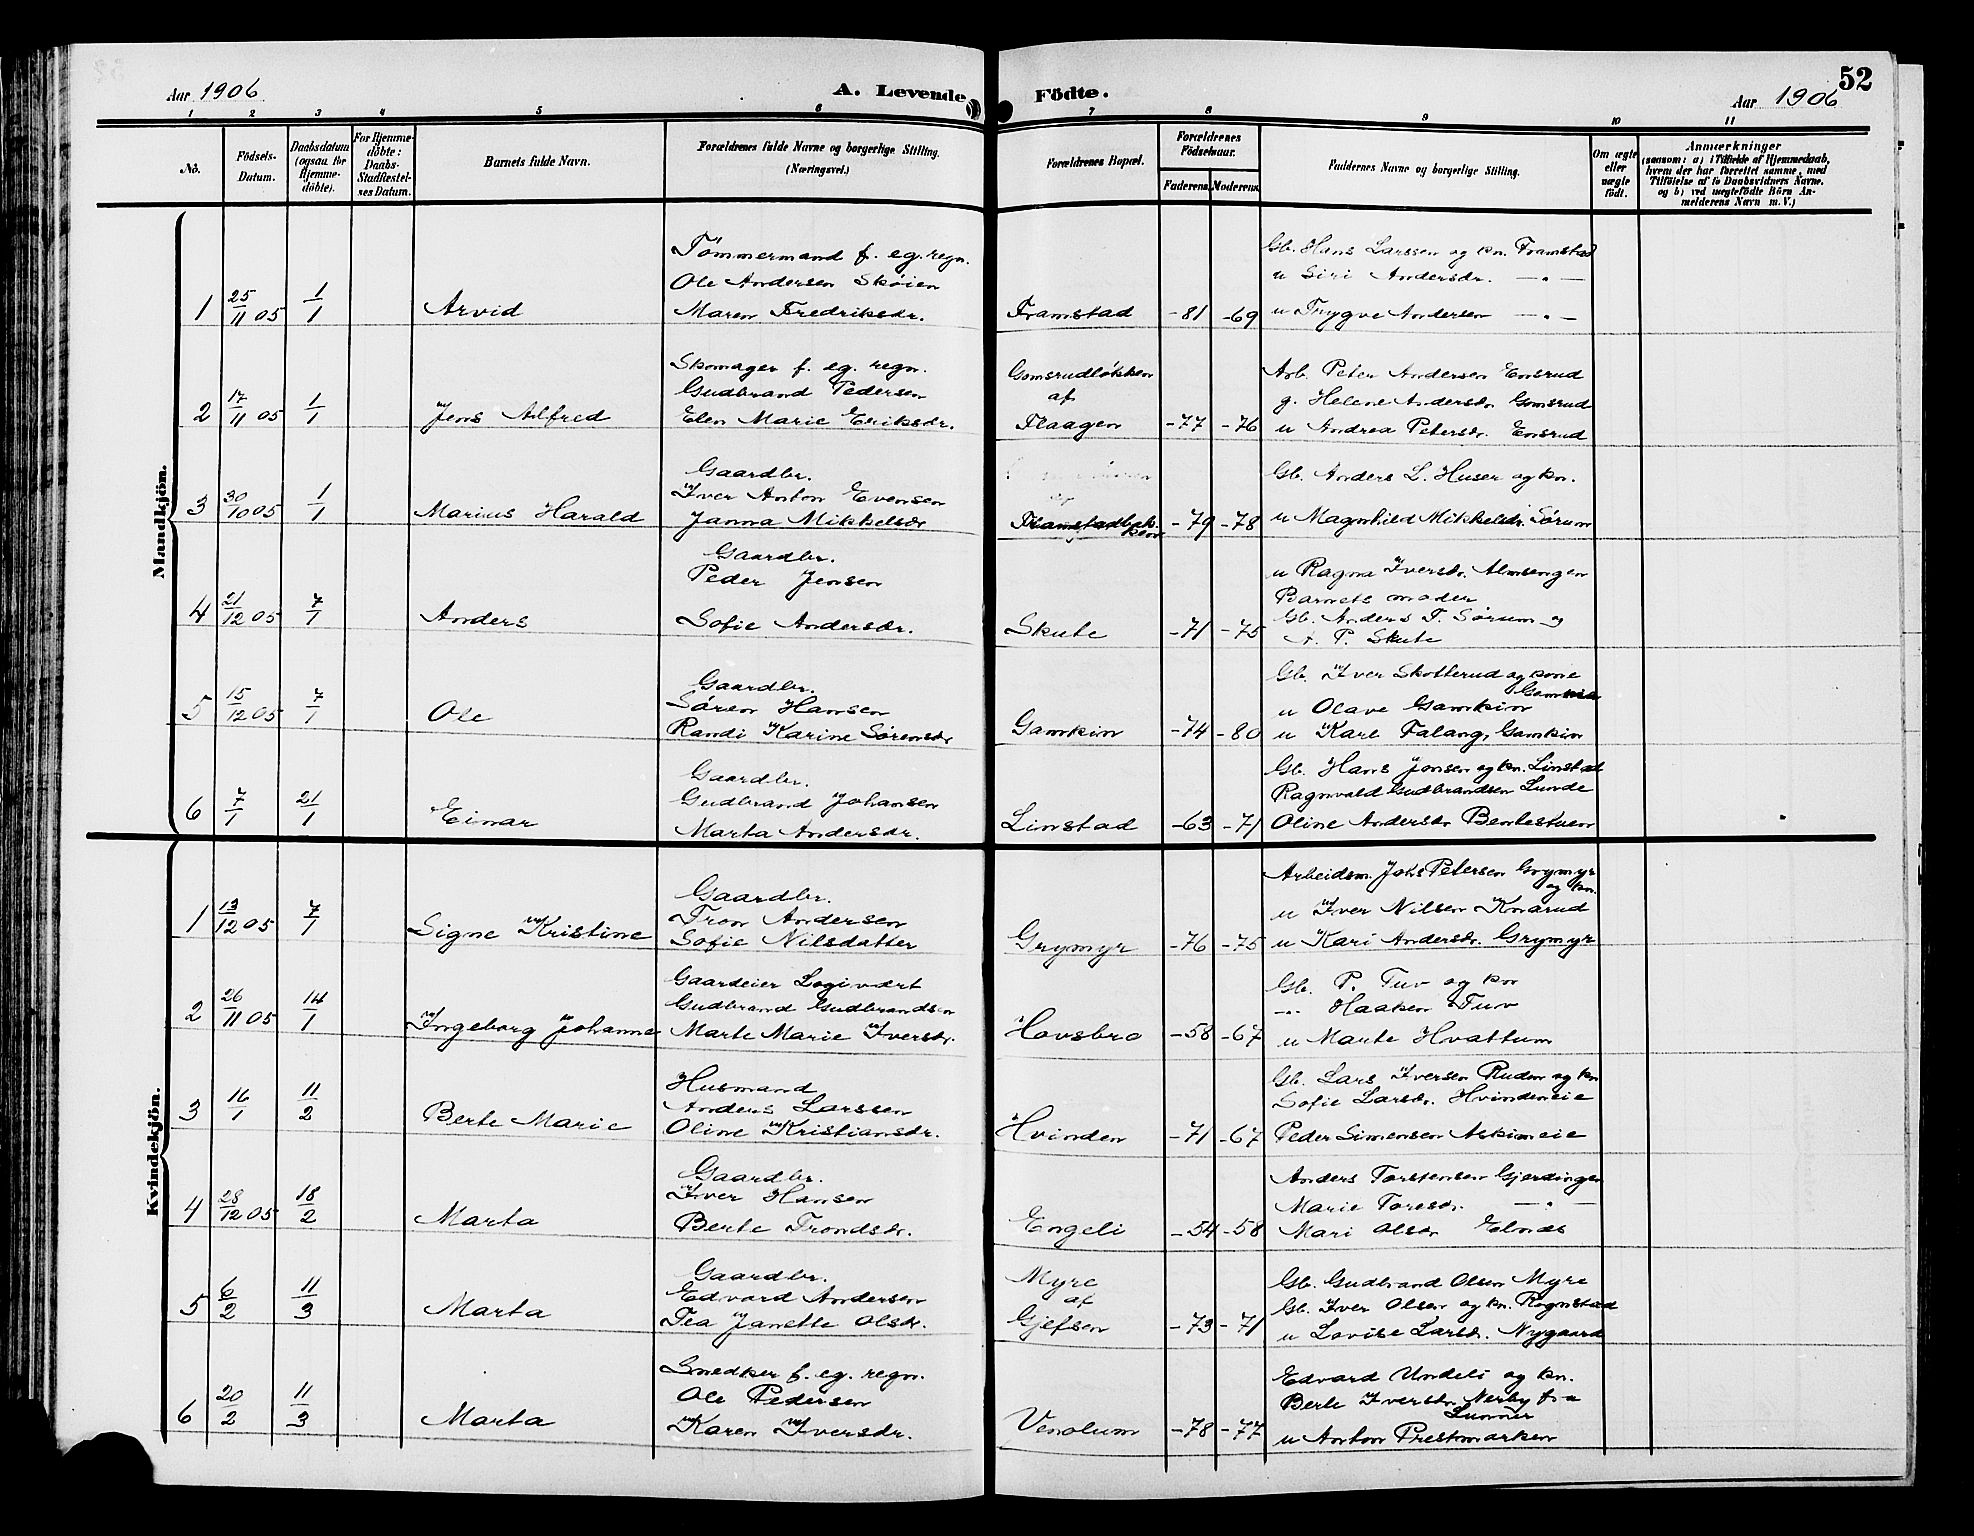 52
Aar 1906 A. Levende Födte. Aar 1906
1 2 3 4 5 6 7 8 9 10 11
No.
Födsels-Datum.
Daabsdatum (ogsaa for Hjemmedöbte).
For Hjemmedöbte: Daabs-Stadfæstelses Datum.
Barnets fulde Navn.
Forældrenes fulde Navne og borgerlige Stilling. (Næringsvei.)
Forældrenes Bopæl.
Forældrenes Födselsaar.
Faderens. Moderens.
Faddernes Navne og borgerlige Stilling.
Om ægte eller uægte födt.
Anmærkninger
(saasom: a) i Tilfælde af Hjemmedaab,
hvem der har forrettet samme, med
Tilföielse af to Daabsvidners Navne.
og b) ved uægtefödte Börn An-
melderens Navn m. V.)
Mandkjön.
Tömmermand f. eg. regn. Gb. Hans Larssen og kn. Framstad
Ole Andersen Skøien u Siri Andersdr. — " —
1 25/11 05 1/1 Arvid Maren Fredriksdr. Framstad -81 -69 u Trygve Andersen — " —
Skomager f. eg. regn. Gomsrudløkken Arb. Peter Andersen Ensrud
Gudbrand Pedersen af g. Helene Andersdr Gomsrud
2 17/11 05 1/1 Jens Alfred Elen Marie Eriksdr. Flaagen -77 -76 u Andrea Petersdr. Ensrud
Gaardbr. Gb. Anders L. Huser og kn.
Iver Anton Evensen af
3 30/10 05 1/1 Marius Harald Janna Mikkelsdr Framstadbakken -79 -78 u Magnhild Mikkelsdr. Sørum
Gaardbr. u Ragna Iversdr. Almsengen
Peder Jensen Barnets moder
4 21/12 05 7/1 Anders Sofie Andersdr. Skute -71 -75 Gb. Anders T. Sørum og
A. P. Skute
Gaardbr. Gb. Iver Skotterud og kone
Søren Hansen u Olave Gamkinn
5 15/12 05 7/1 Ole Randi Karine Sørensdr Gamkinn -74 -80 u Karl Falang, Gamkinn
Gaardbr. Gb. Hans Jonsen og kn. Linstad
Gudbrand Johansen Ragnvald Gudbrandsen Lunde
6 7/1 21/1 Einar Marta Andersdr. Linstad -63 -71 Oline Andersdr Bentestuen
Kvindekjön.
Gaardbr. Arbeidsm. Johs Petersen Grymyr og kn.
Tron Andersen u Iver Nilsen Knarud
1 13/12 05 7/1 Signe Kristine Sofie Nilsdatter Grymyr -76 -75 u Kari Andersdr. Grymyr
Gaardeier Logivært Gb. P. Tuv og kn
Gudbrand Gudbrandsen -"- Haaken Tuv
2 26/11 05 14/1 Ingeborg Johanne Marte Marie Iversdr. Hovsbro -58 -67 u Marte Hvattum
Husmand Gb. Lars Iversen Ruden og kn
Anders Larssen Sofie Larsdr. Hvindeneie
3 16/1 11/2 Berte Marie Oline Kristiansdr. Hvinden -71 -67 Peder Simensen Askimeie
Gaardbr. Anders Torstensen Gjerdingen
Iver Hansen Marie Toresdr. — " —
4 28/12 05 18/2 Marta Berte Trondsdr. Engeli -54 -58 Mari Olsdr Elnæs
Gaardbr. Myre Gb. Gudbrand Olsen Myre
Edvard Andersen af Gb. Iver Olsen og kn. Rognstad
5 6/2 11/3 Marta Tea Janette Olsdr. Gjefsen -73 -71 u Lovise Larsdr. Nygaard
Snedker f. eg. regn. Edvard Undeli og kn.
Ole Pedersen Berte Iversdr Nerby fra Lunner
6 20/2 11/3 Marta Karen Iversdr. Venolum -78 -77 u Anton Prestmarken